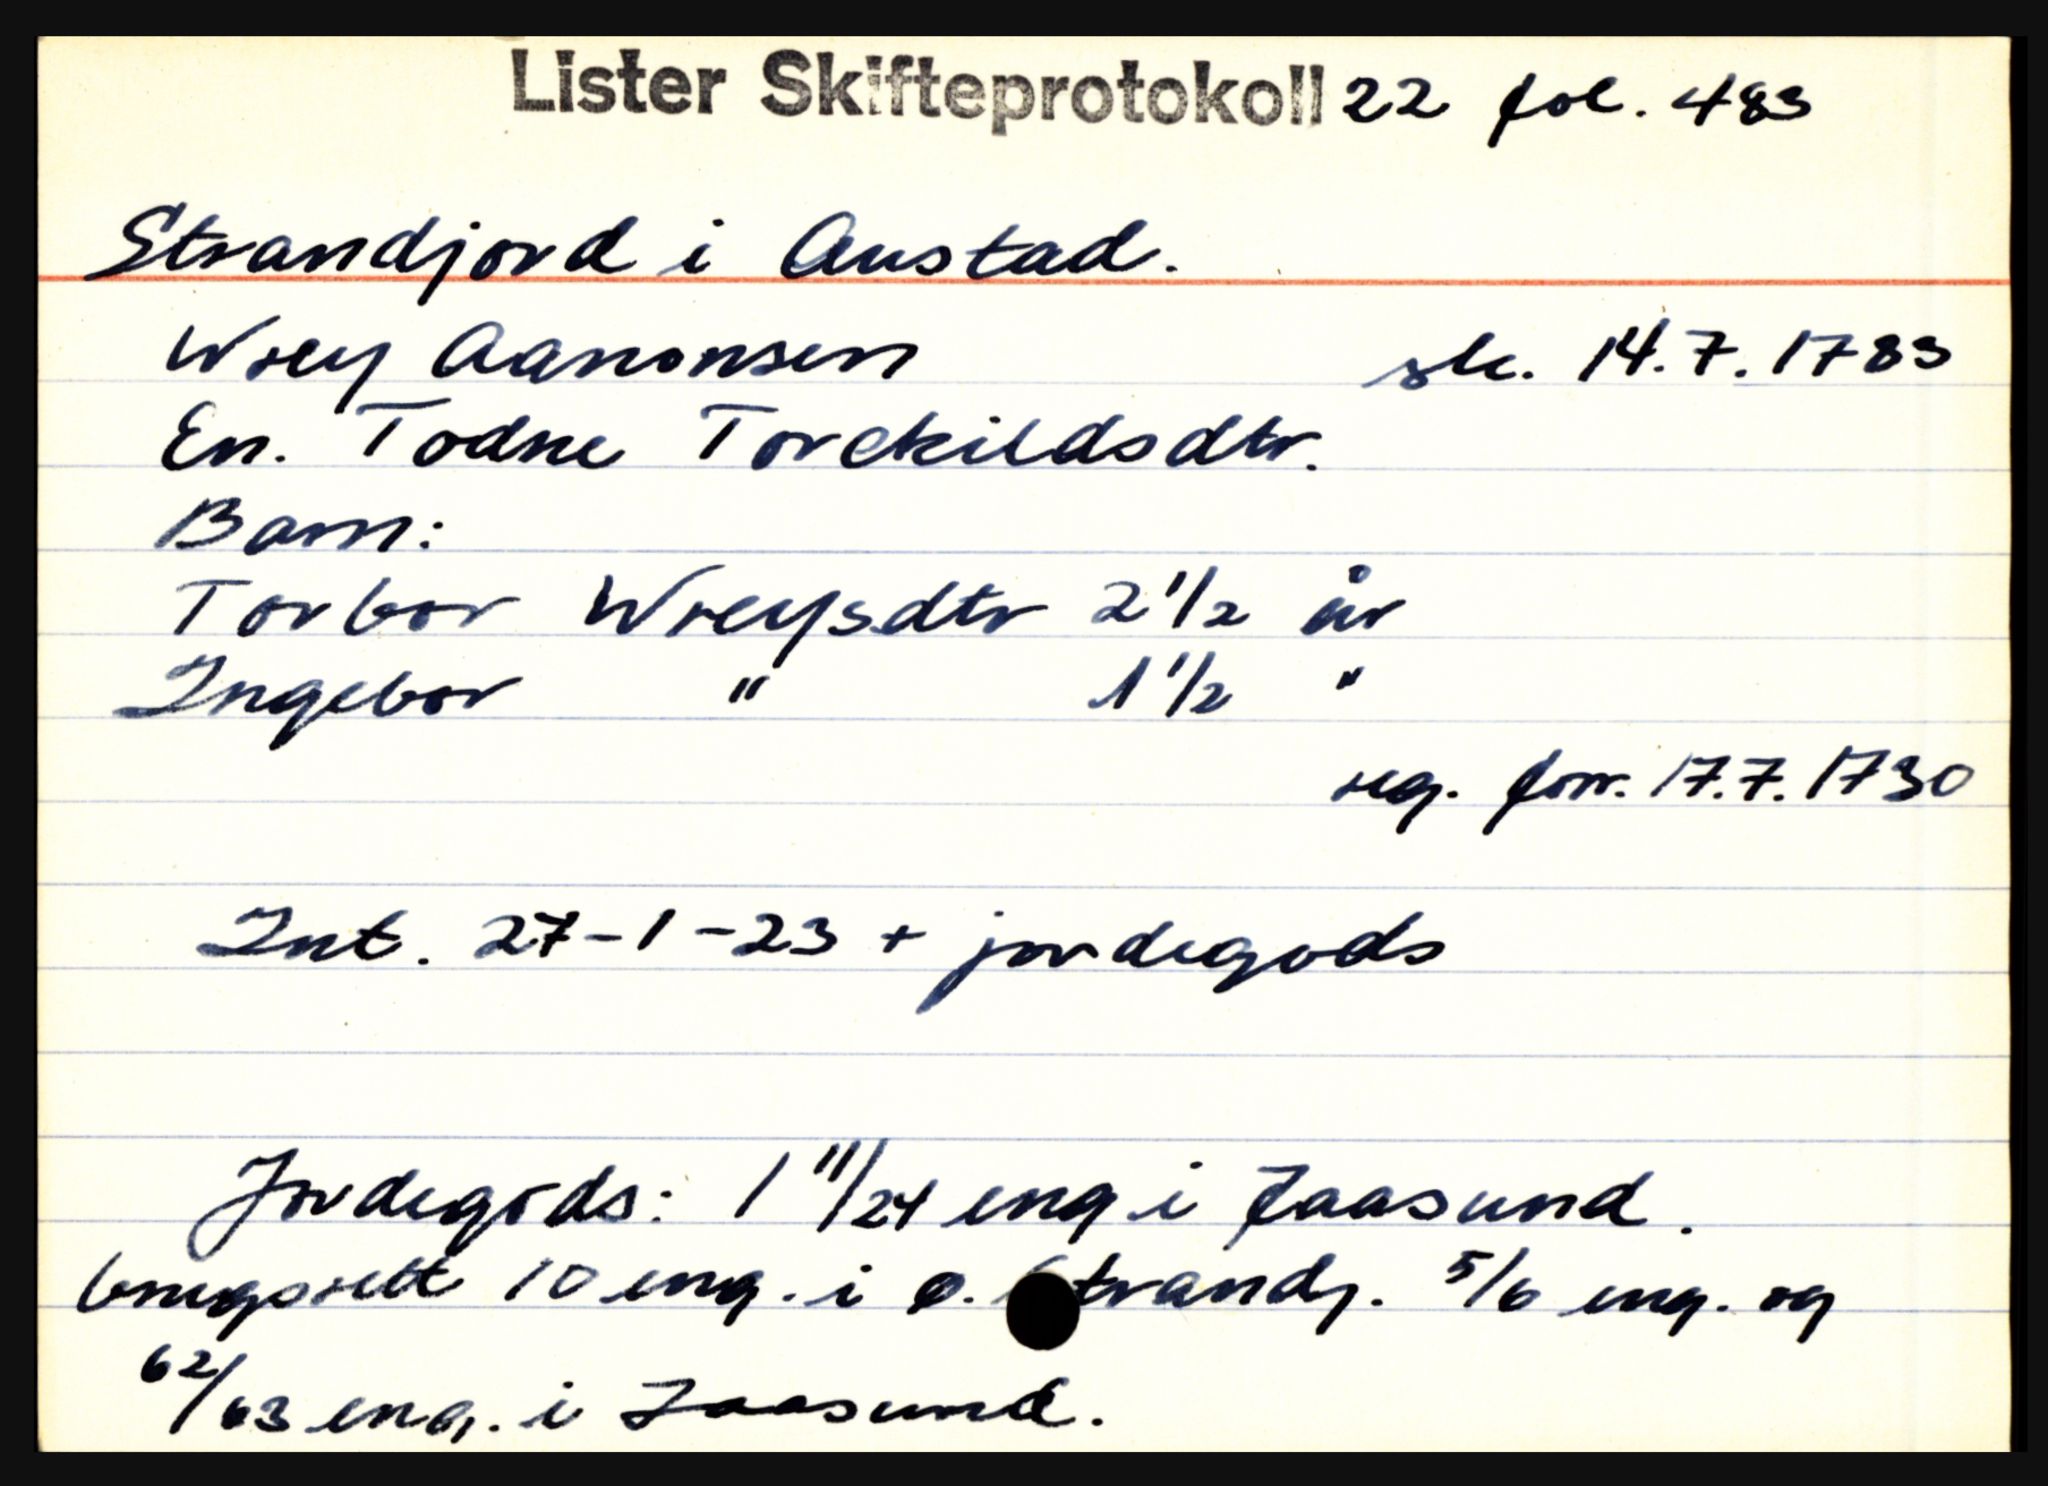 Lister Skifteprotokoll 22 fol. 483
Strandjord i Austad.
Wrey Aanonsen sk. 14.7.1783
En. Todne Torckildsdtr.
Barn:
Torbor Wreysdtr 2 1/2 år
Ingebor " 1 1/2 "
reg. forr. 17.7.1730
Int. 27-1-23 + jordegods
Jordegods: 1 11/24 eng i Jaasund.
brugsrett 10 eng. i ø. Strandj. 5/6 eng. og
62/63 eng. i Jaasund.